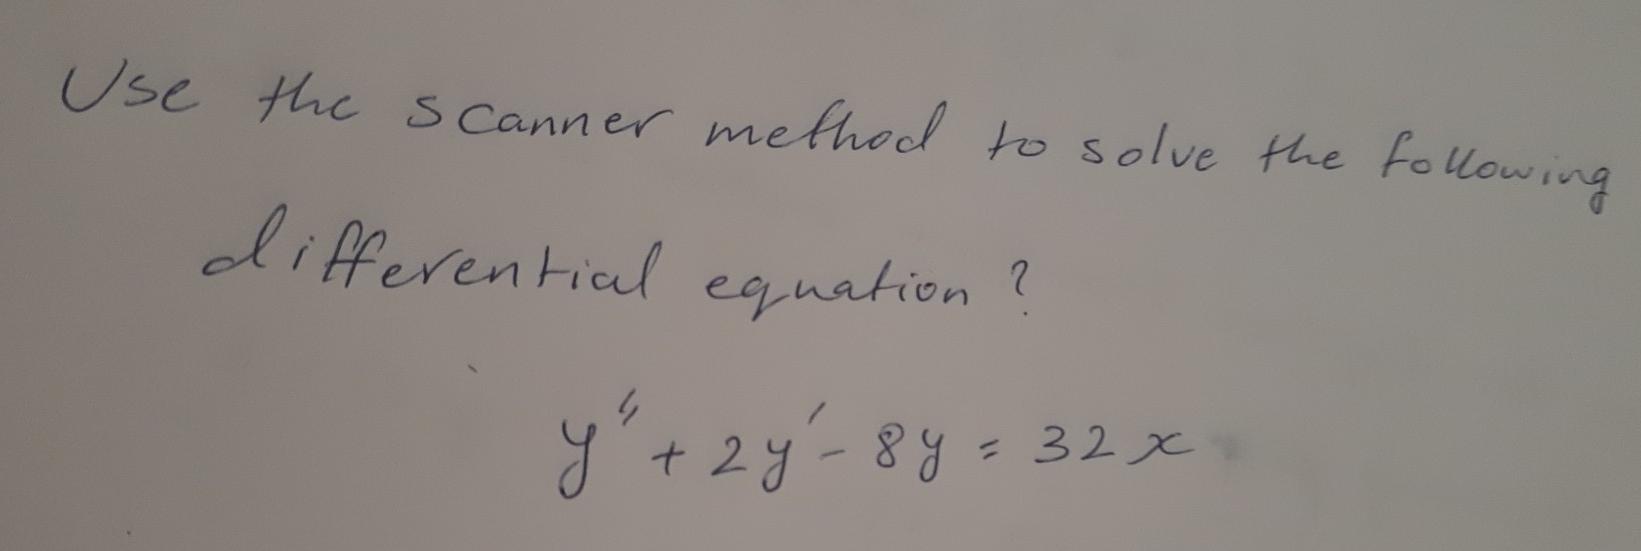 Use the scanner method to solve the following
differential equation?
y" + 2y' - 8y = 32x